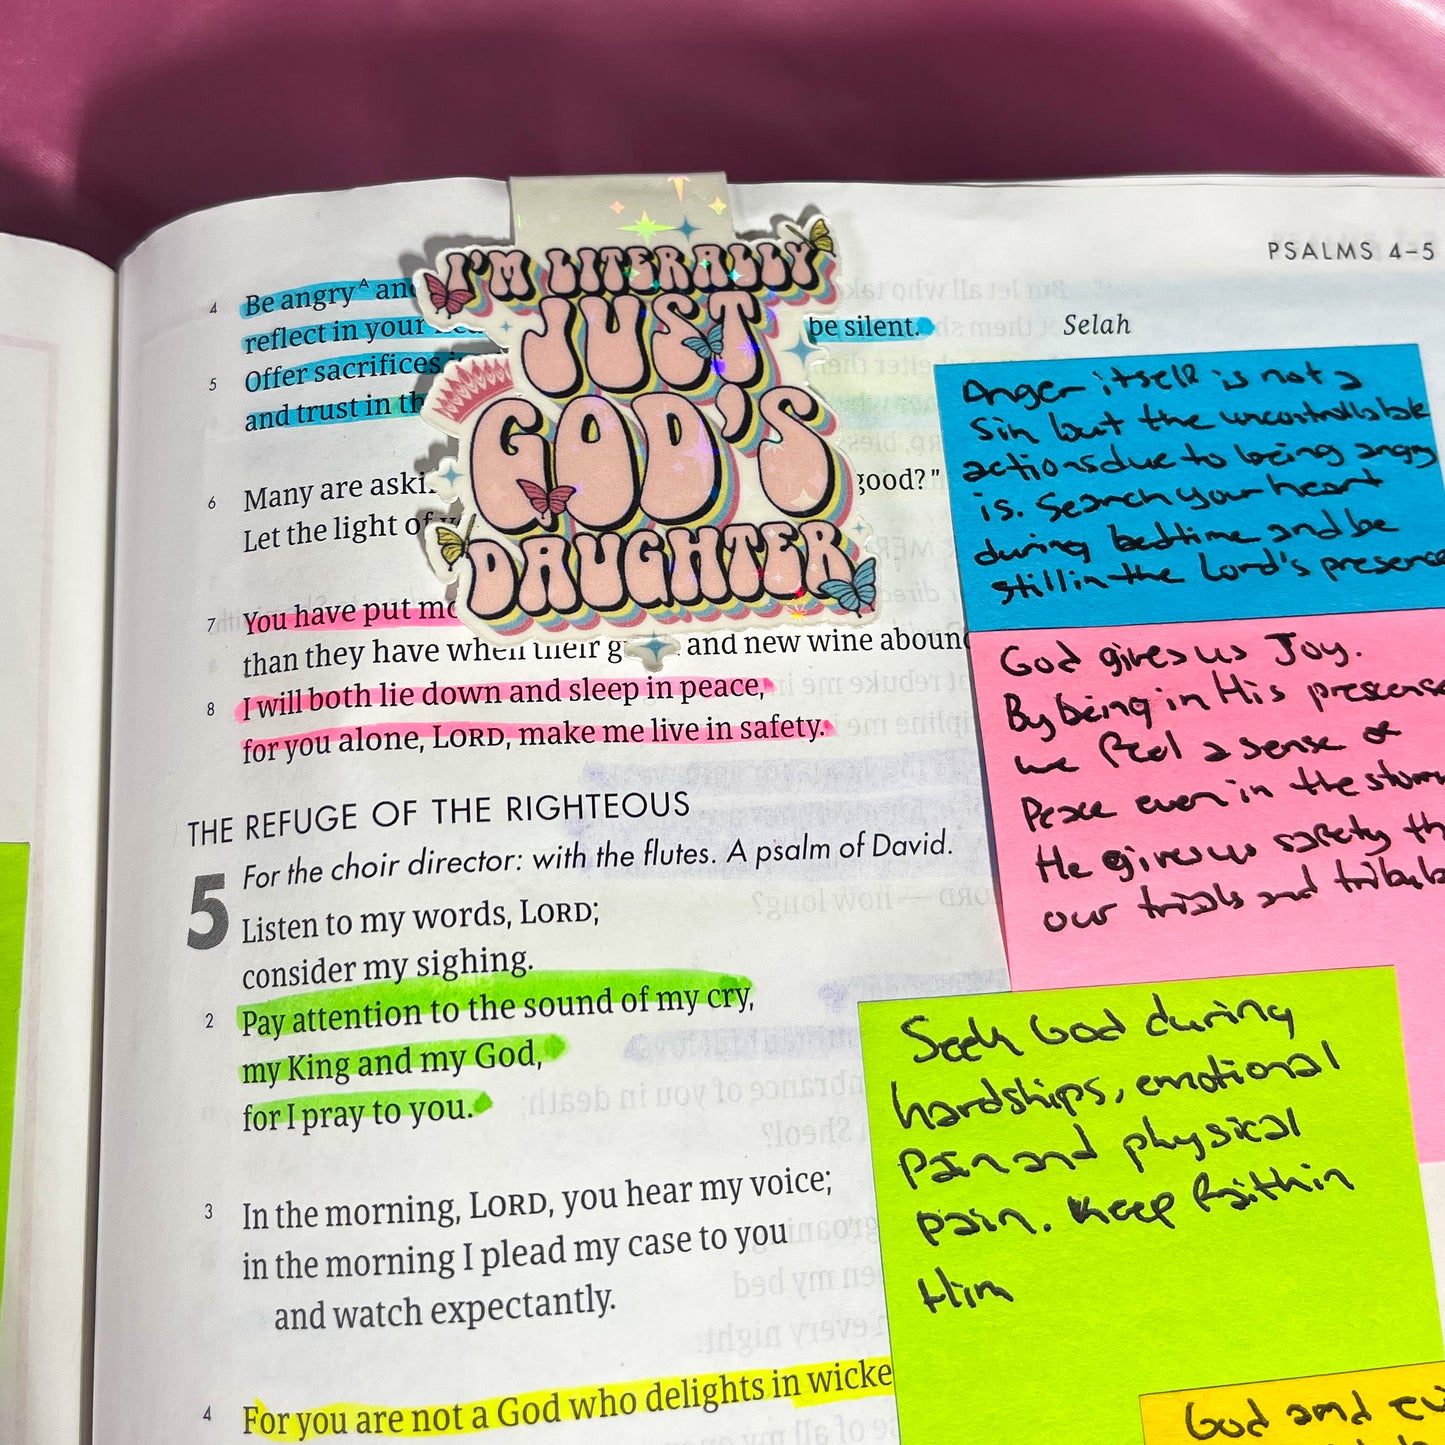 PSALMS 4–5
4 Be angry^A and
reflect in your be silent. Selah
5 Offer sacrifices
and trust in
6 Many are good?"
Let the light of
7 You have put
than they have when their and new wine
8 I will both lie down and sleep in peace,
for you alone, LORD, make me live in safety.
THE REFUGE OF THE RIGHTEOUS
For the choir director: with the flutes. A psalm of David.
5 Listen to my words, LORD;
consider my sighing.
2 Pay attention to the sound of my cry,
my King and my God,
for I pray to you.
3 In the morning, LORD, you hear my voice;
in the morning I plead my case to you
and watch expectantly.
4 For you are not a God who delights in
I'M LITERALLY
JUST
GOD'S
DAUGHTER
Anger itself is not a
sin but the uncontrollable
actions due to being angry
is. Search your heart
during bedtime and be
still in the Lord's presence
God gives us Joy.
By being in His presence
we feel a sense of
Peace even in the
He gives us safety
our trials and
Seek God during
hardships, emotional
Pain and physical
pain. Keep faith in
Him
God and